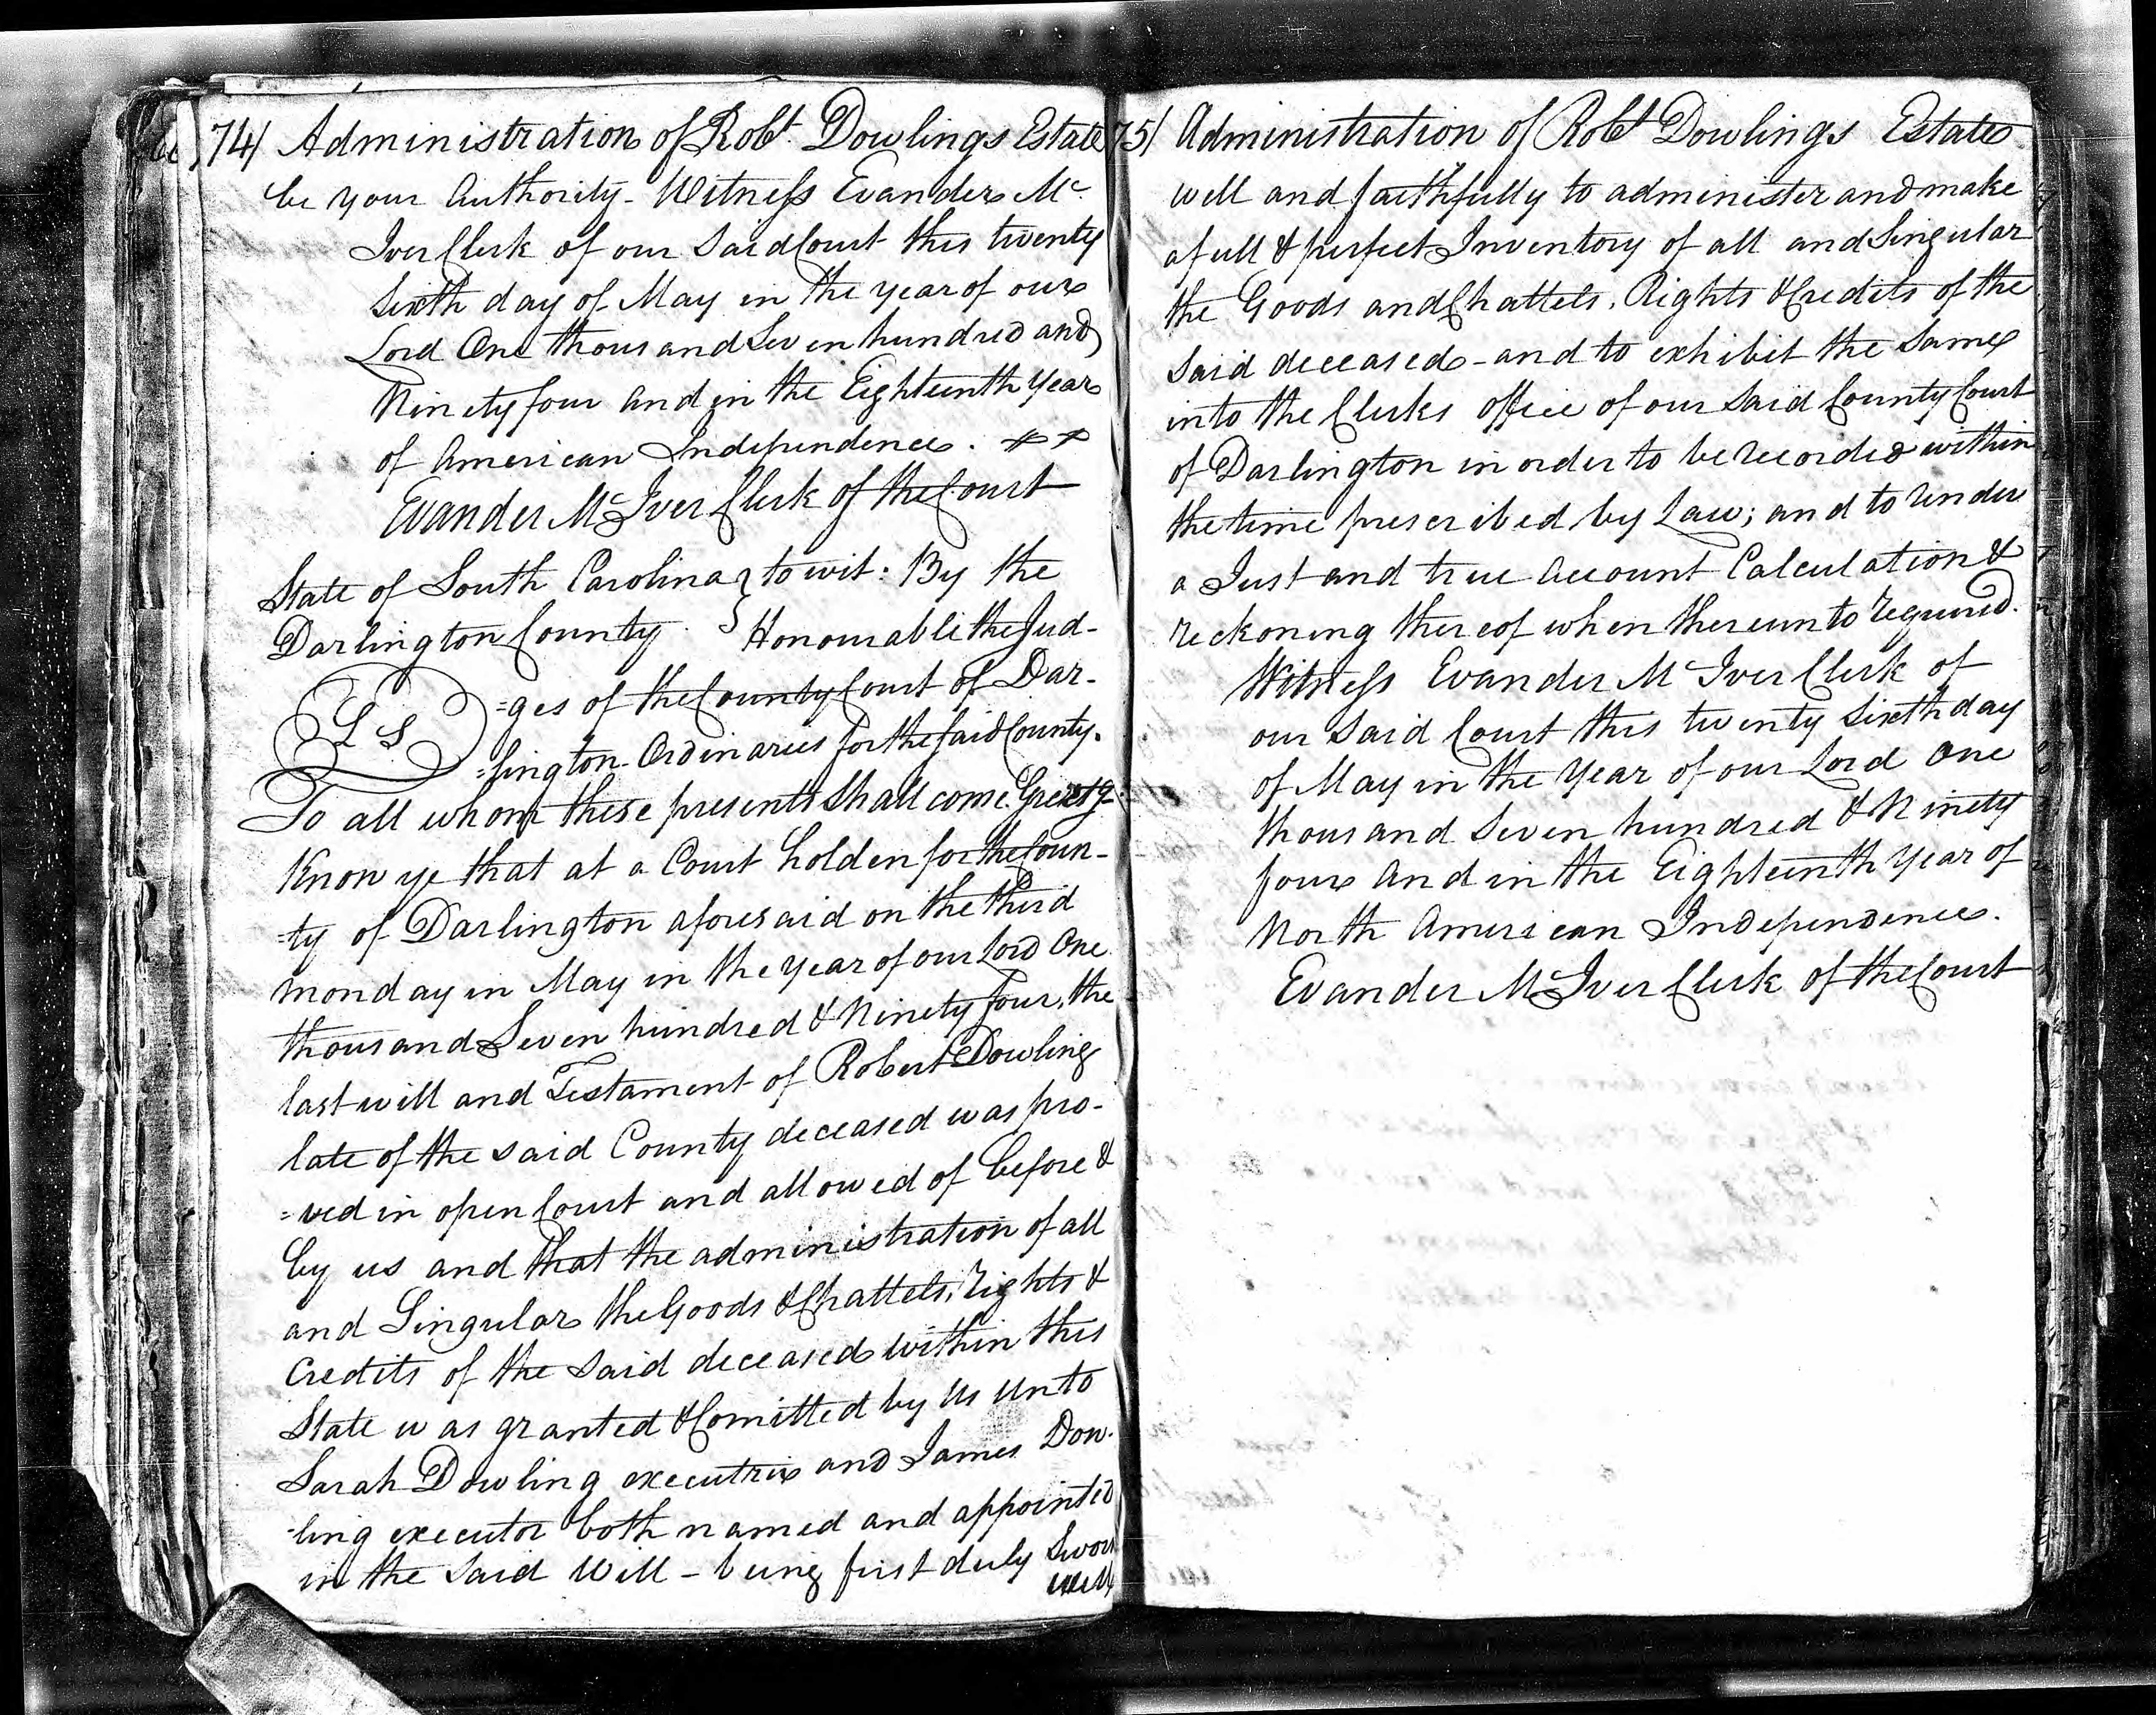 74/ Administration of Robt. Dowlings Estate
be your Authority - Witness Evander Mc
Iver Clerk of our Said Court this twenty
Sixth day of May in the year of our
Lord One thousand Seven hundred and
Ninety four and in the Eighteenth Year
of American Independence.
Evander McIver Clerk of the Court
State of South Carolina } to wit: By the
Darlington County. } Honourable the Jud-
=ges of the County Court of Dar-
L S
=lington Ordinaries for the said County.
To all whom these presents Shall come Greetg.
Know ye that at a Court holden for the Coun-
=ty of Darlington aforesaid on the third
monday in May in the year of our Lord One
thousand Seven hundred & Ninety four, the
last will and Testament of Robert Dowling
late of the said County deceased was pro-
=ved in open Court and allowed of before &
by us and that the administration of all
and Singular the Goods & Chattels, rights &
Credits of the Said deceased within this
State was granted & Comitted by Us Unto
Sarah Dowling executrix and James Dow-
-ling executor both named and appointed
in the Said Will - being first duly Swor
well
75/ Administration of Robt Dowlings Estate
well and faithfully to administer and make
a full & perfect Inventory of all and Singular
the Goods and Chattels, Rights & Credits of the
Said deceased - and to exhibit the Same
into the Clerks office of our Said County Court
of Darlington in order to be recorded within
the time prescribed by Law; and to render
a Just and true Account Calculation &
reckoning thereof when thereunto required.
Witness Evander McIver Clerk of
our Said Court this twenty Sixth day
of May in the Year of our Lord One
thousand Seven hundred & Ninety
four and in the Eighteenth Year of
North American Independence.
Evander McIver Clerk of the Court